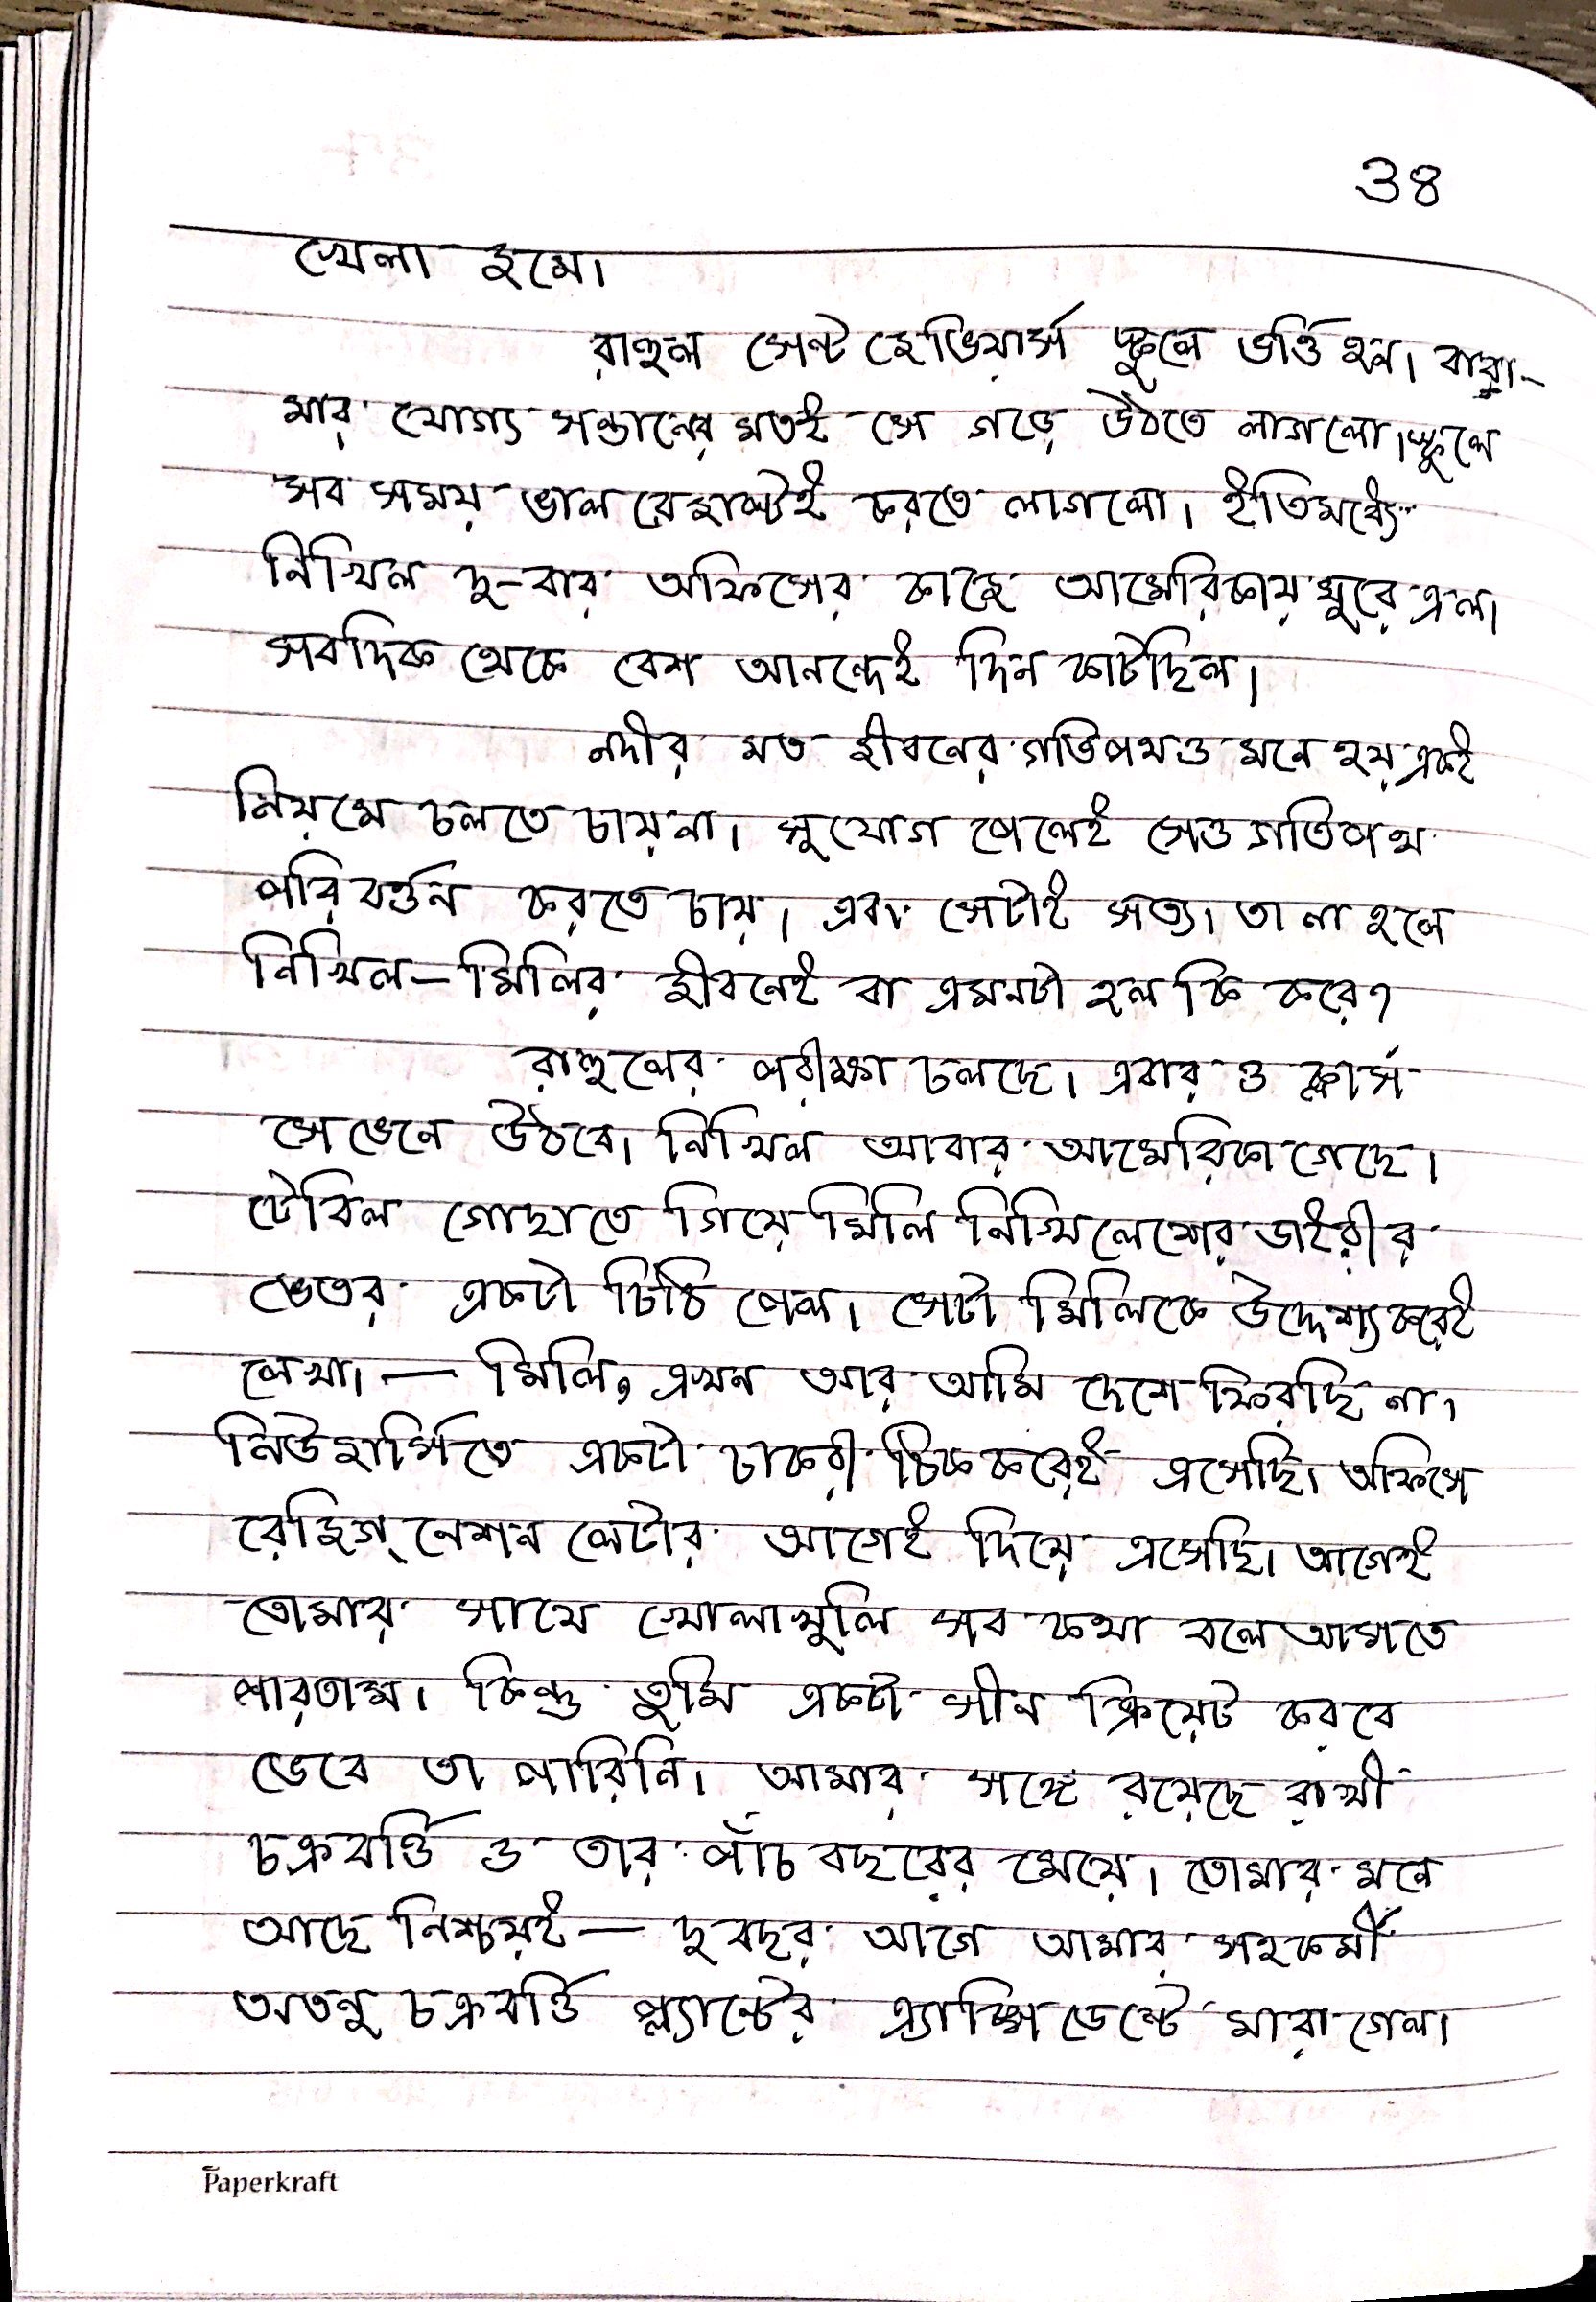 ৩৪
খেলা হবে।
রাহুল সেন্ট জেভিয়ার্স স্কুলে ভর্ত্তি হল। বাবা-
মার যোগ্য সন্তানের মতই সে গড়ে উঠতে লাগলো। স্কুলে
সব সময় ভাল রেজাল্টই করতে লাগলো। ইতিমধ্যে
নিখিল দু-বার অফিসের কাজে আমেরিকায় ঘুরে এল।
সবদিক থেকে বেশ আনন্দেই দিন কাটছিল।
নদীর মত জীবনের গতিপথও মনে হয় একই
নিয়মে চলতে চায়না। সুযোগ পেলেই সেও গতিপথ
পরিবর্ত্তন করতে চায়। এবং সেটাই সত্য। তা না হলে
নিখিল-মিলির জীবনেই বা এমনটা হল কি করে?
রাহুলের পরীক্ষা চলছে। এবার ও ক্লাস
সেভেনে উঠবে। নিখিল আবার আমেরিকা গেছে।
টেবিল গোছাতে গিয়ে মিলি নিখিলেশের ডাইরীর
ভেতর একটা চিঠি পেল। সেটা মিলিকে উদ্দেশ্য করেই
লেখা। — মিলি, এখন আর আমি দেশে ফিরছি না।
নিউজার্সিতে একটা চাকরী ঠিক করেই এসেছি। অফিসে
রেজিগ্‌নেশন লেটার আগেই দিয়ে এসেছি। আগেই
তোমায় সাথে খোলাখুলি সব কথা বলে আসতে
পারতাম। কিন্তু তুমি একটা সীন ক্রিয়েট করবে
ভেবে তা পারিনি। আমার সঙ্গে রয়েছে রাখী
চক্রবর্ত্তি ও তার পাঁচ বছরের মেয়ে। তোমার মনে
আছে নিশ্চয়ই — দু বছর আগে আমার সহকর্মী
অতনু চক্রবর্ত্তি প্ল্যান্টের এ্যাক্সিডেন্টে মারা গেল।
Paperkraft